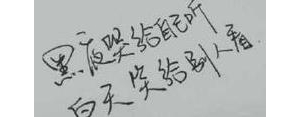 黑夜哭给自己听
白天笑给别人看.